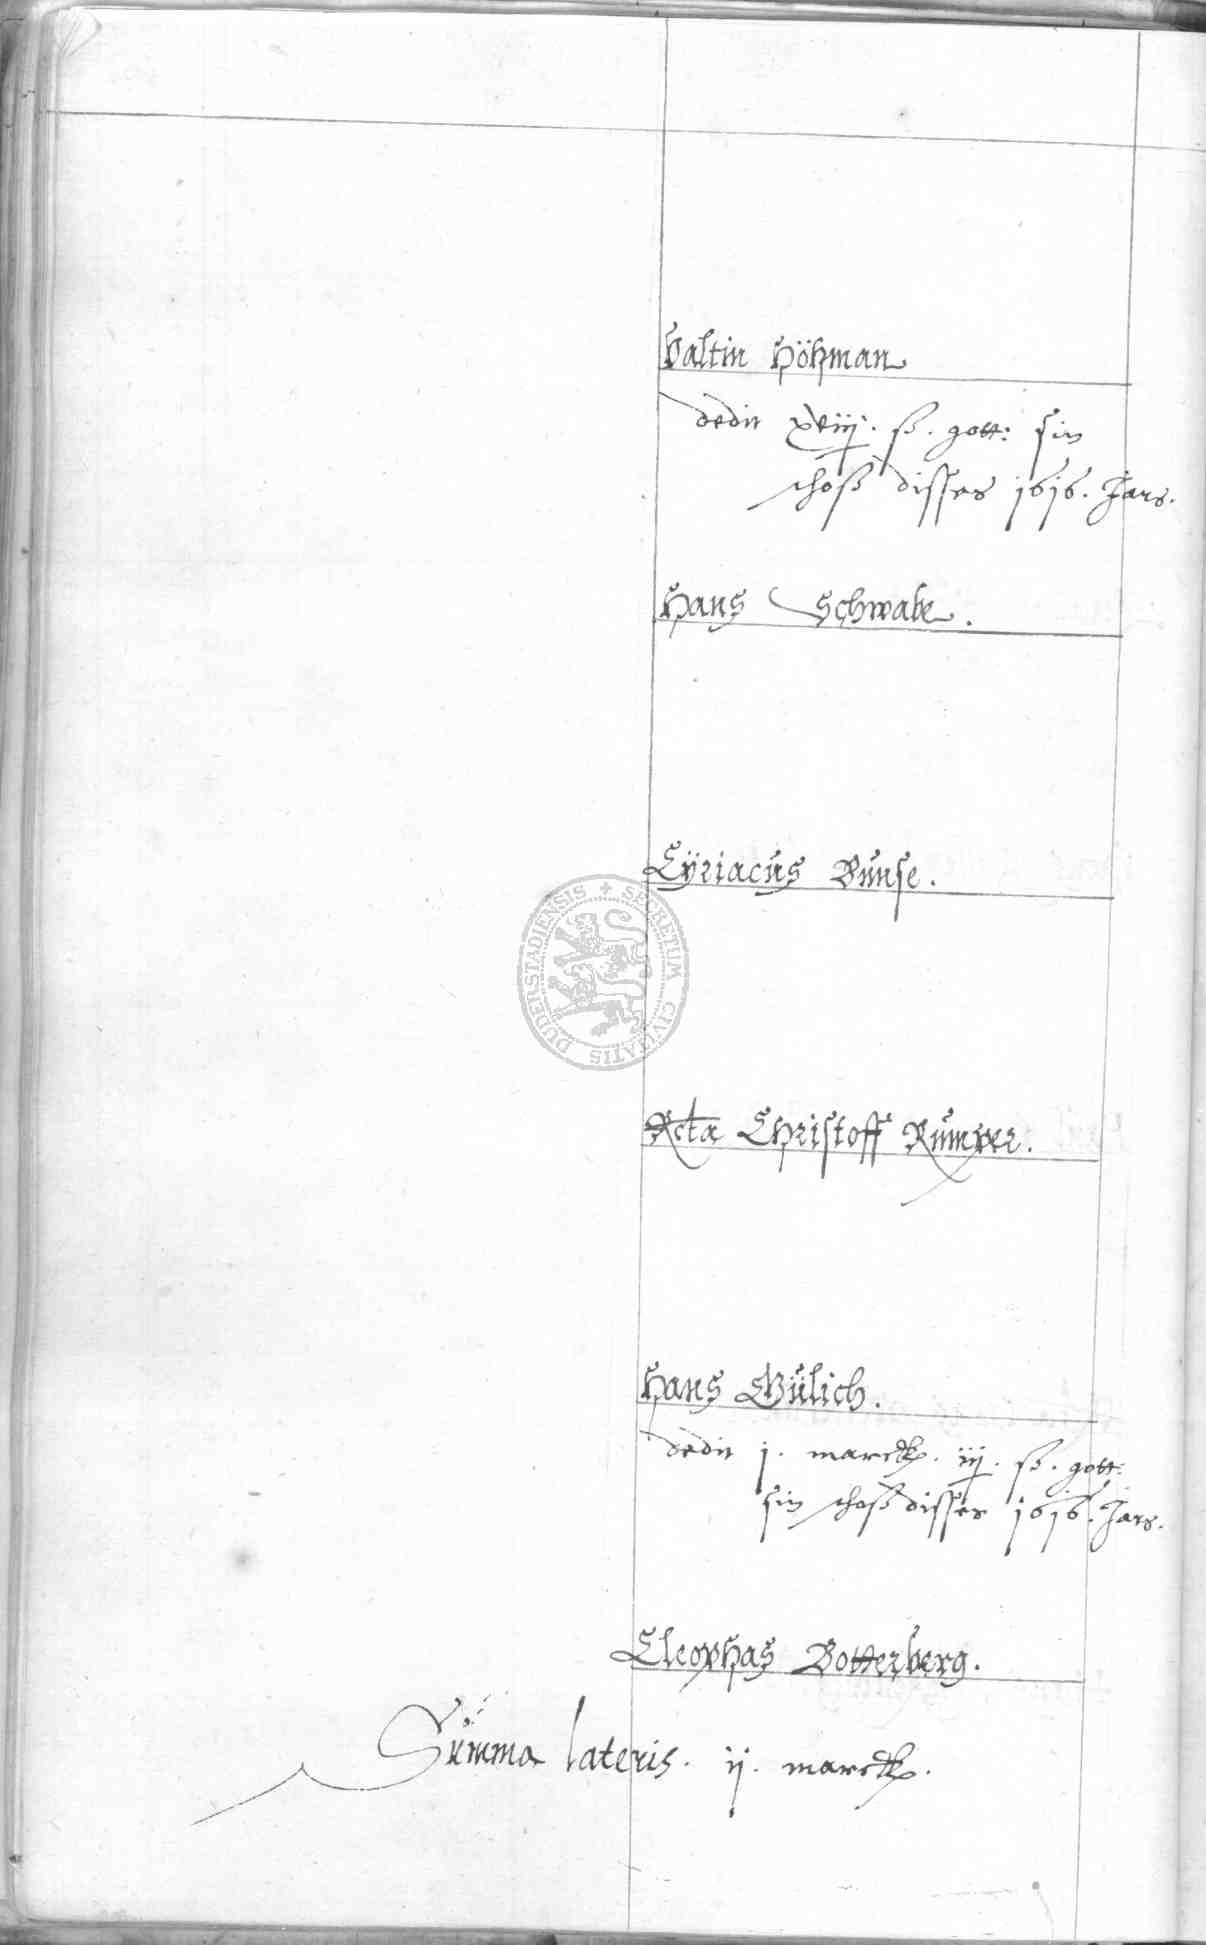 Valtin Höhman
dedit xviij. ß. gott: sin
schoß disses 1616. Jars.
Hans Schwabe.
Cÿriacus Bunse.
DUDERSTADIENSIS + SECRETUM CIVITATIS
Relicta Christoff Rumper.
Hans Gülich.
dedit j. marck. iij. ß. gott:
sin schoß disses 1616. Jars.
Cleophas Botterberg.
Summa lateris. ij. marck.